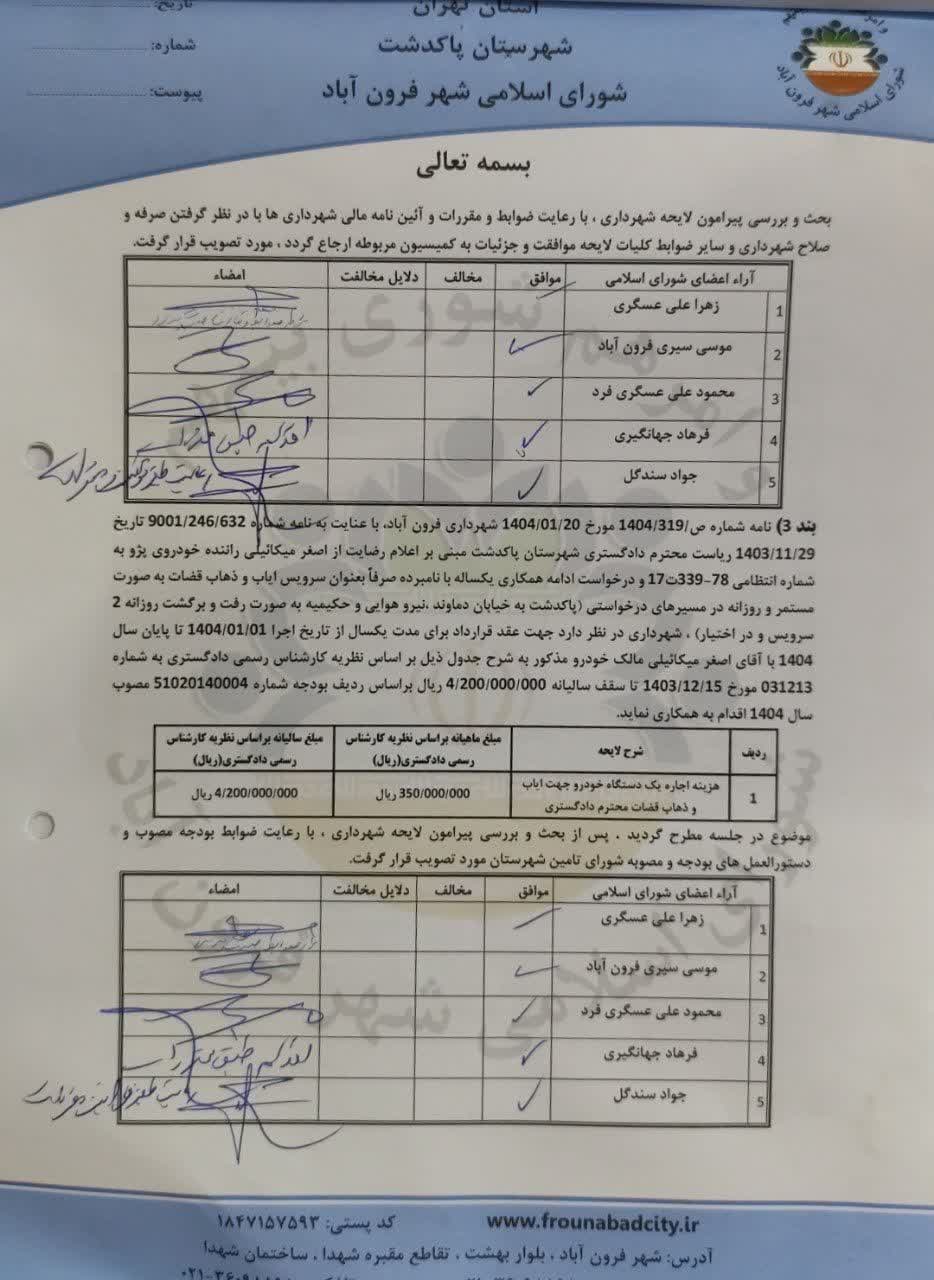 استان تهران
شهرستان پاکدشت
شورای اسلامی شهر فرون آباد
تاریخ:
شماره:
پیوست:
شورای اسلامی شهر فرون آباد
بسمه تعالی
بحث و بررسی پیرامون لایحه شهرداری ، با رعایت ضوابط و مقررات و آئین نامه مالی شهرداری ها با در نظر گرفتن صرفه و
صلاح شهرداری و سایر ضوابط کلیات لایحه موافقت و جزئیات به کمیسیون مربوطه ارجاع گردد ، مورد تصویب قرار گرفت.
آراء اعضای شورای اسلامی موافق مخالف دلایل مخالفت امضاء
1 زهرا علی عسگری
2 موسی سیری فرون آباد
3 محمود علی عسگری فرد
4 فرهاد جهانگیری
5 جواد سندگل
بند 3) نامه شماره ص/1404/319 مورخ 1404/01/20 شهرداری فرون آباد، با عنایت به نامه شماره 9001/246/632 تاریخ
1403/11/29 ریاست محترم دادگستری شهرستان پاکدشت مبنی بر اعلام رضایت از اصغر میکائیلی راننده خودروی پژو به
شماره انتظامی 78-339ت17 و درخواست ادامه همکاری یکساله با نامبرده صرفاً بعنوان سرویس ایاب و ذهاب قضات به صورت
مستمر و روزانه در مسیرهای درخواستی (پاکدشت به خیابان دماوند ،نیرو هوایی و حکیمیه به صورت رفت و برگشت روزانه 2
سرویس و در اختیار) ، شهرداری در نظر دارد جهت عقد قرارداد برای مدت یکسال از تاریخ اجرا 1404/01/01 تا پایان سال
1404 با آقای اصغر میکائیلی مالک خودرو مذکور به شرح جدول ذیل بر اساس نظریه کارشناس رسمی دادگستری به شماره
031213 مورخ 1403/12/15 تا سقف سالیانه 4/200/000/000 ریال براساس ردیف بودجه شماره 51020140004 مصوب
سال 1404 اقدام به همکاری نماید.
ردیف شرح لایحه مبلغ ماهیانه براساس نظریه کارشناس رسمی دادگستری(ریال) مبلغ سالیانه براساس نظریه کارشناس رسمی دادگستری(ریال)
1 هزینه اجاره یک دستگاه خودرو جهت ایاب و ذهاب قضات محترم دادگستری 350/000/000 ریال 4/200/000/000 ریال
موضوع در جلسه مطرح گردید ، پس از بحث و بررسی پیرامون لایحه شهرداری ، با رعایت ضوابط بودجه مصوب و
دستورالعمل های بودجه و مصوبه شورای تامین شهرستان مورد تصویب قرار گرفت.
آراء اعضای شورای اسلامی موافق مخالف دلایل مخالفت امضاء
1 زهرا علی عسگری
2 موسی سیری فرون آباد
3 محمود علی عسگری فرد
4 فرهاد جهانگیری
5 جواد سندگل
www.frounabadcity.ir
کد پستی: ۱۸۴۷۱۵۷۵۹۳
آدرس: شهر فرون آباد ، بلوار بهشت ، تقاطع مقبره شهدا ، ساختمان شهدا